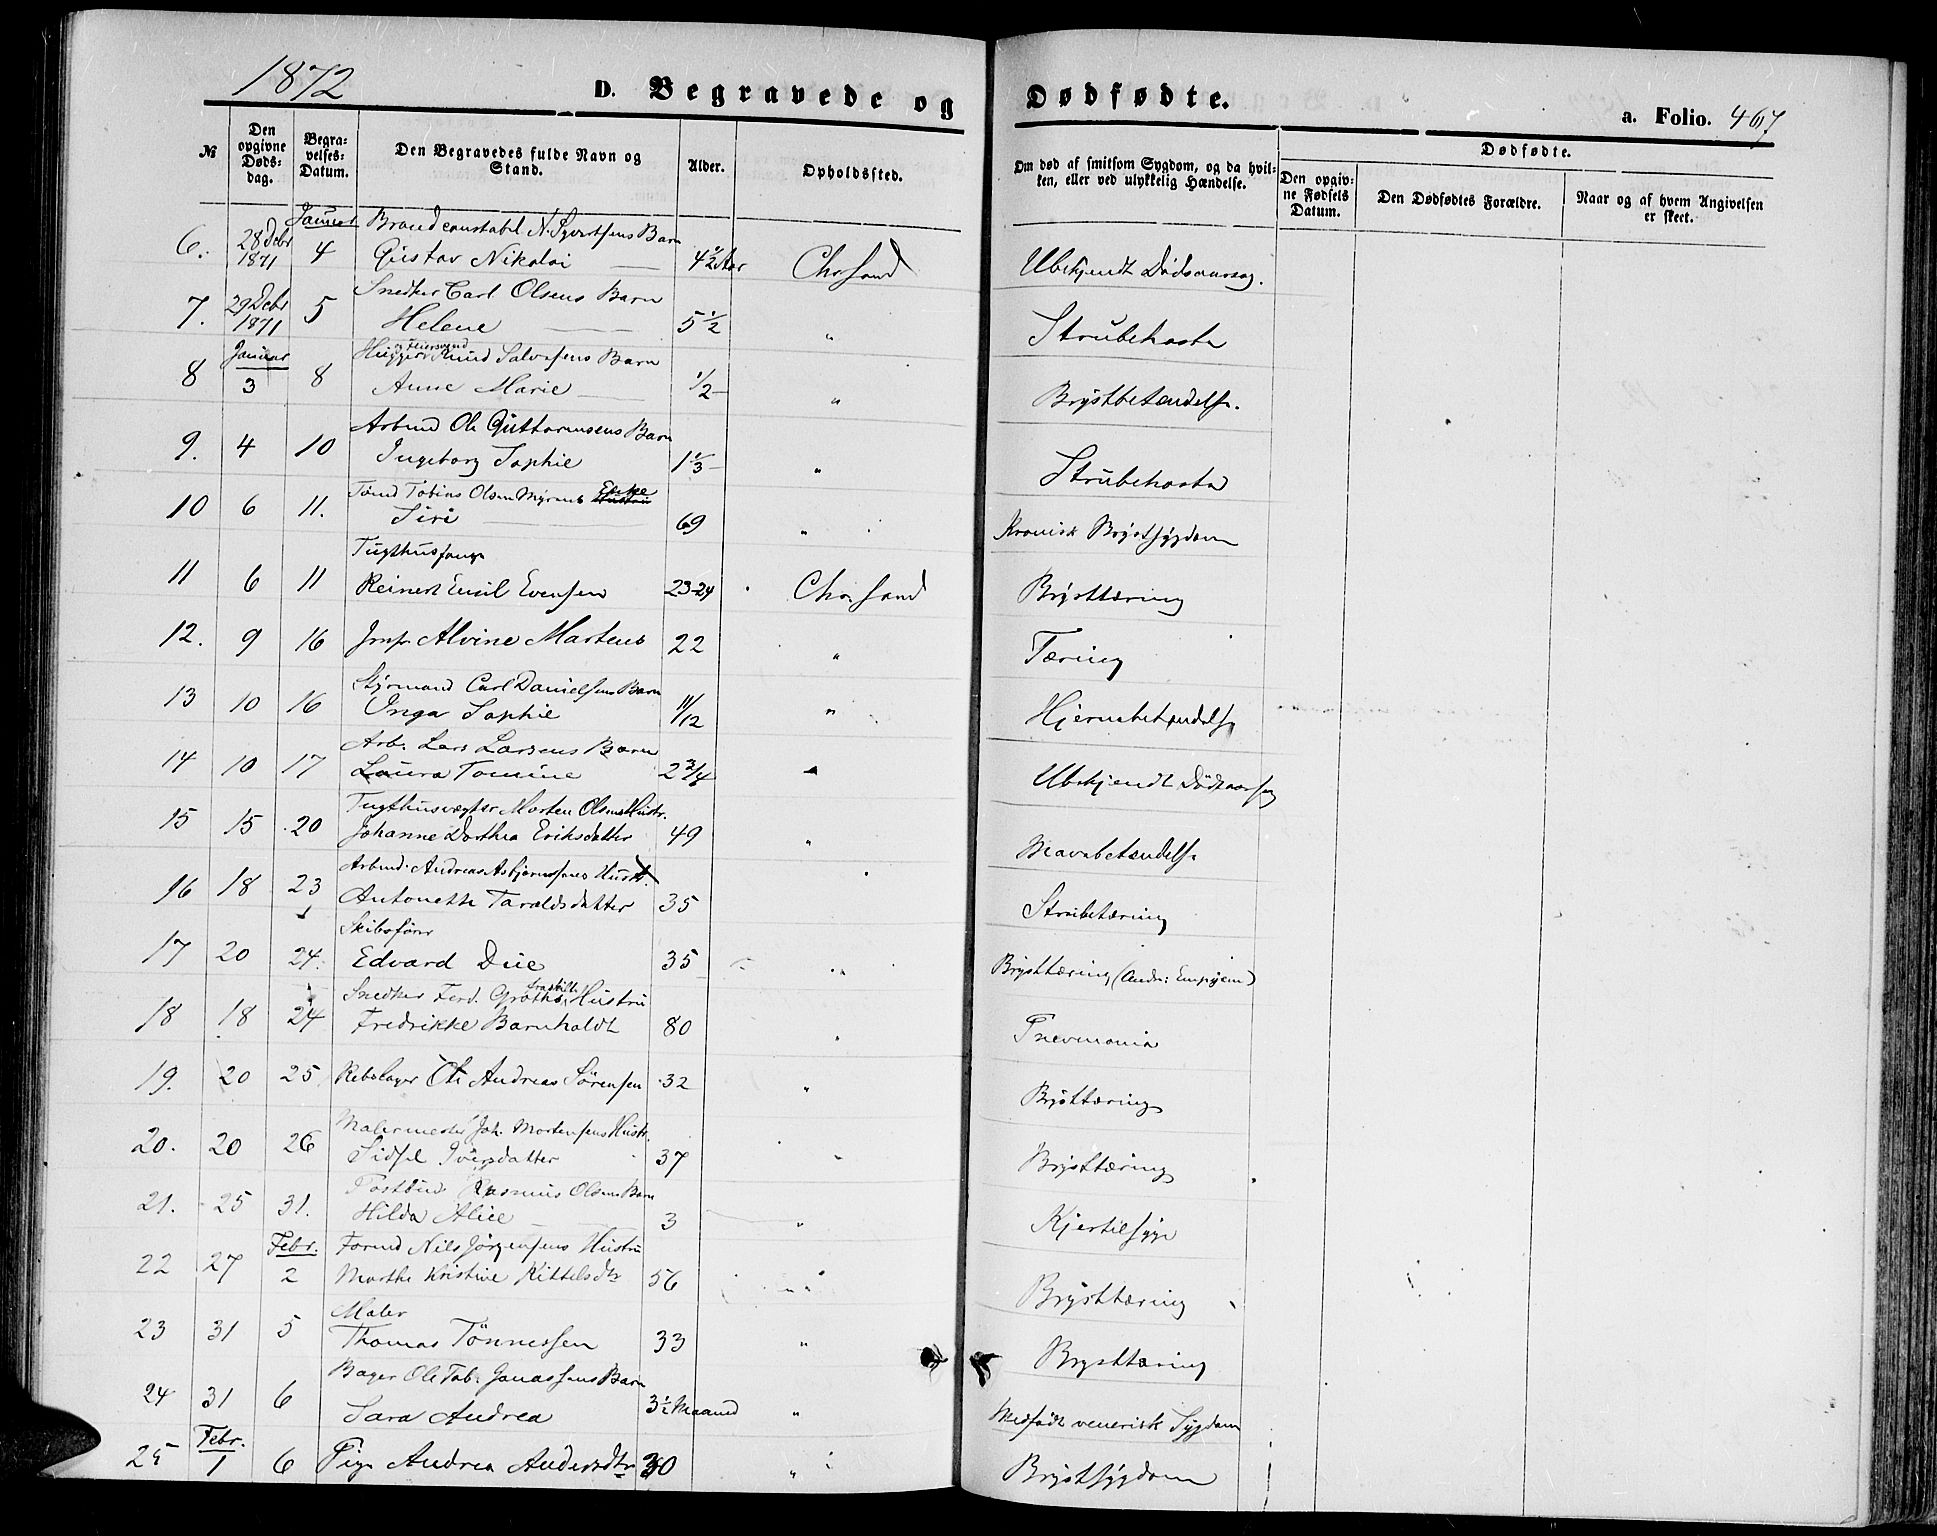 1872
D. Begravede og Dødfødte.
a. Folio. 467
№
Den opgivne Døds-dag.
Begra-velses-Datum.
Den Begravedes fulde Navn og Stand.
Alder.
Opholdssted.
Om død af smitsom Sygdom, og da hvil-
ken, eller ved ulykkelig Hændelse.
Dødfødte.
Den opgiv-ne Fødsels Datum.
Den Dødfødtes Forældre.
Naar og af hvem Angivelsen er skeet.
Januar Brandconstabel N. Syvertsens Barn
6. 28 Debr 1871 4 Gustav Nikolai 4½ Aar Chr.sand Ubekjendt Dødsaarsag.
Snedker Carl Olsens Barn
7. 29 Debr 1871 5 Helene 5½ " Strubehoste
Januar Knud Salvesens Barn
8 3 8 Anne Marie ½ " Brystbetændelse.
Arbmd Ole Guttormsens Barn
9. 4 10 Ingeborg Sophie 1⅓ " Strubehoste
Tømd Tobias Olsen Myrens Enke
10 6 11. Siri 69 " Kronisk Brystsygdom
Tugthusfange
11 6 11 Reinert Emil Evensen 23-24 Chr.sand Brysttæring
12. 9 16 Jmf. Alvine Martens 22 " Tæring
Styrmand Carl Danielsens Barn
13 10 16 Inga Sophie 11/12 " Hjernebetændelse
Arb. Lars Larsens Barn
14 10 17 Laura Tomine 2¾ " Ubekjendt Dødsaarsag
Tugthusvægter Morten Olsens Hustr.
15 15 20 Johanne Dorthea Eriksdatter 49 " Mavebetændelse
Arbmd. Andreas Asbjørnsens Hustr.
16 18 23 Antonette Taraldsdatter 35 Strubetæring
Skibsfører
17 20 24. Edvard Due 35 " Brysttæring (Andr: Empyem)
Snedker Ferd. Groths fraskilte Hustru
18 18 24 Fredrikke Barnholdt 80 " Pnevmonia
19. 20 25 Rebslager Ole Andreas Sörensen 32 " Brysttæring
Malermester Joh. Mortensens Hustr.
20. 20 26 Sidsel Iversdatter 37 " Brysttæring
Postbud Rasmus Olsens Barn
21. 25 31. Hilda Alice 3 " Kjertelsyge
Febr. Formd Nils Jörgensens Hustru
22 27 2 Marthe Kristine Kittelsdtr 56 " Brysttæring
Maler
23 31 5 Thomas Tönnessen 33 " Brysttæring
Bager Ole Tob. Jonassens Barn
24 31 6 Sara Andrea 3½ Maaned " Medfødt venerisk Sygdom
Febr.
25 1 6 Pige Andrea Andersdtr 30 " Brystsygdom